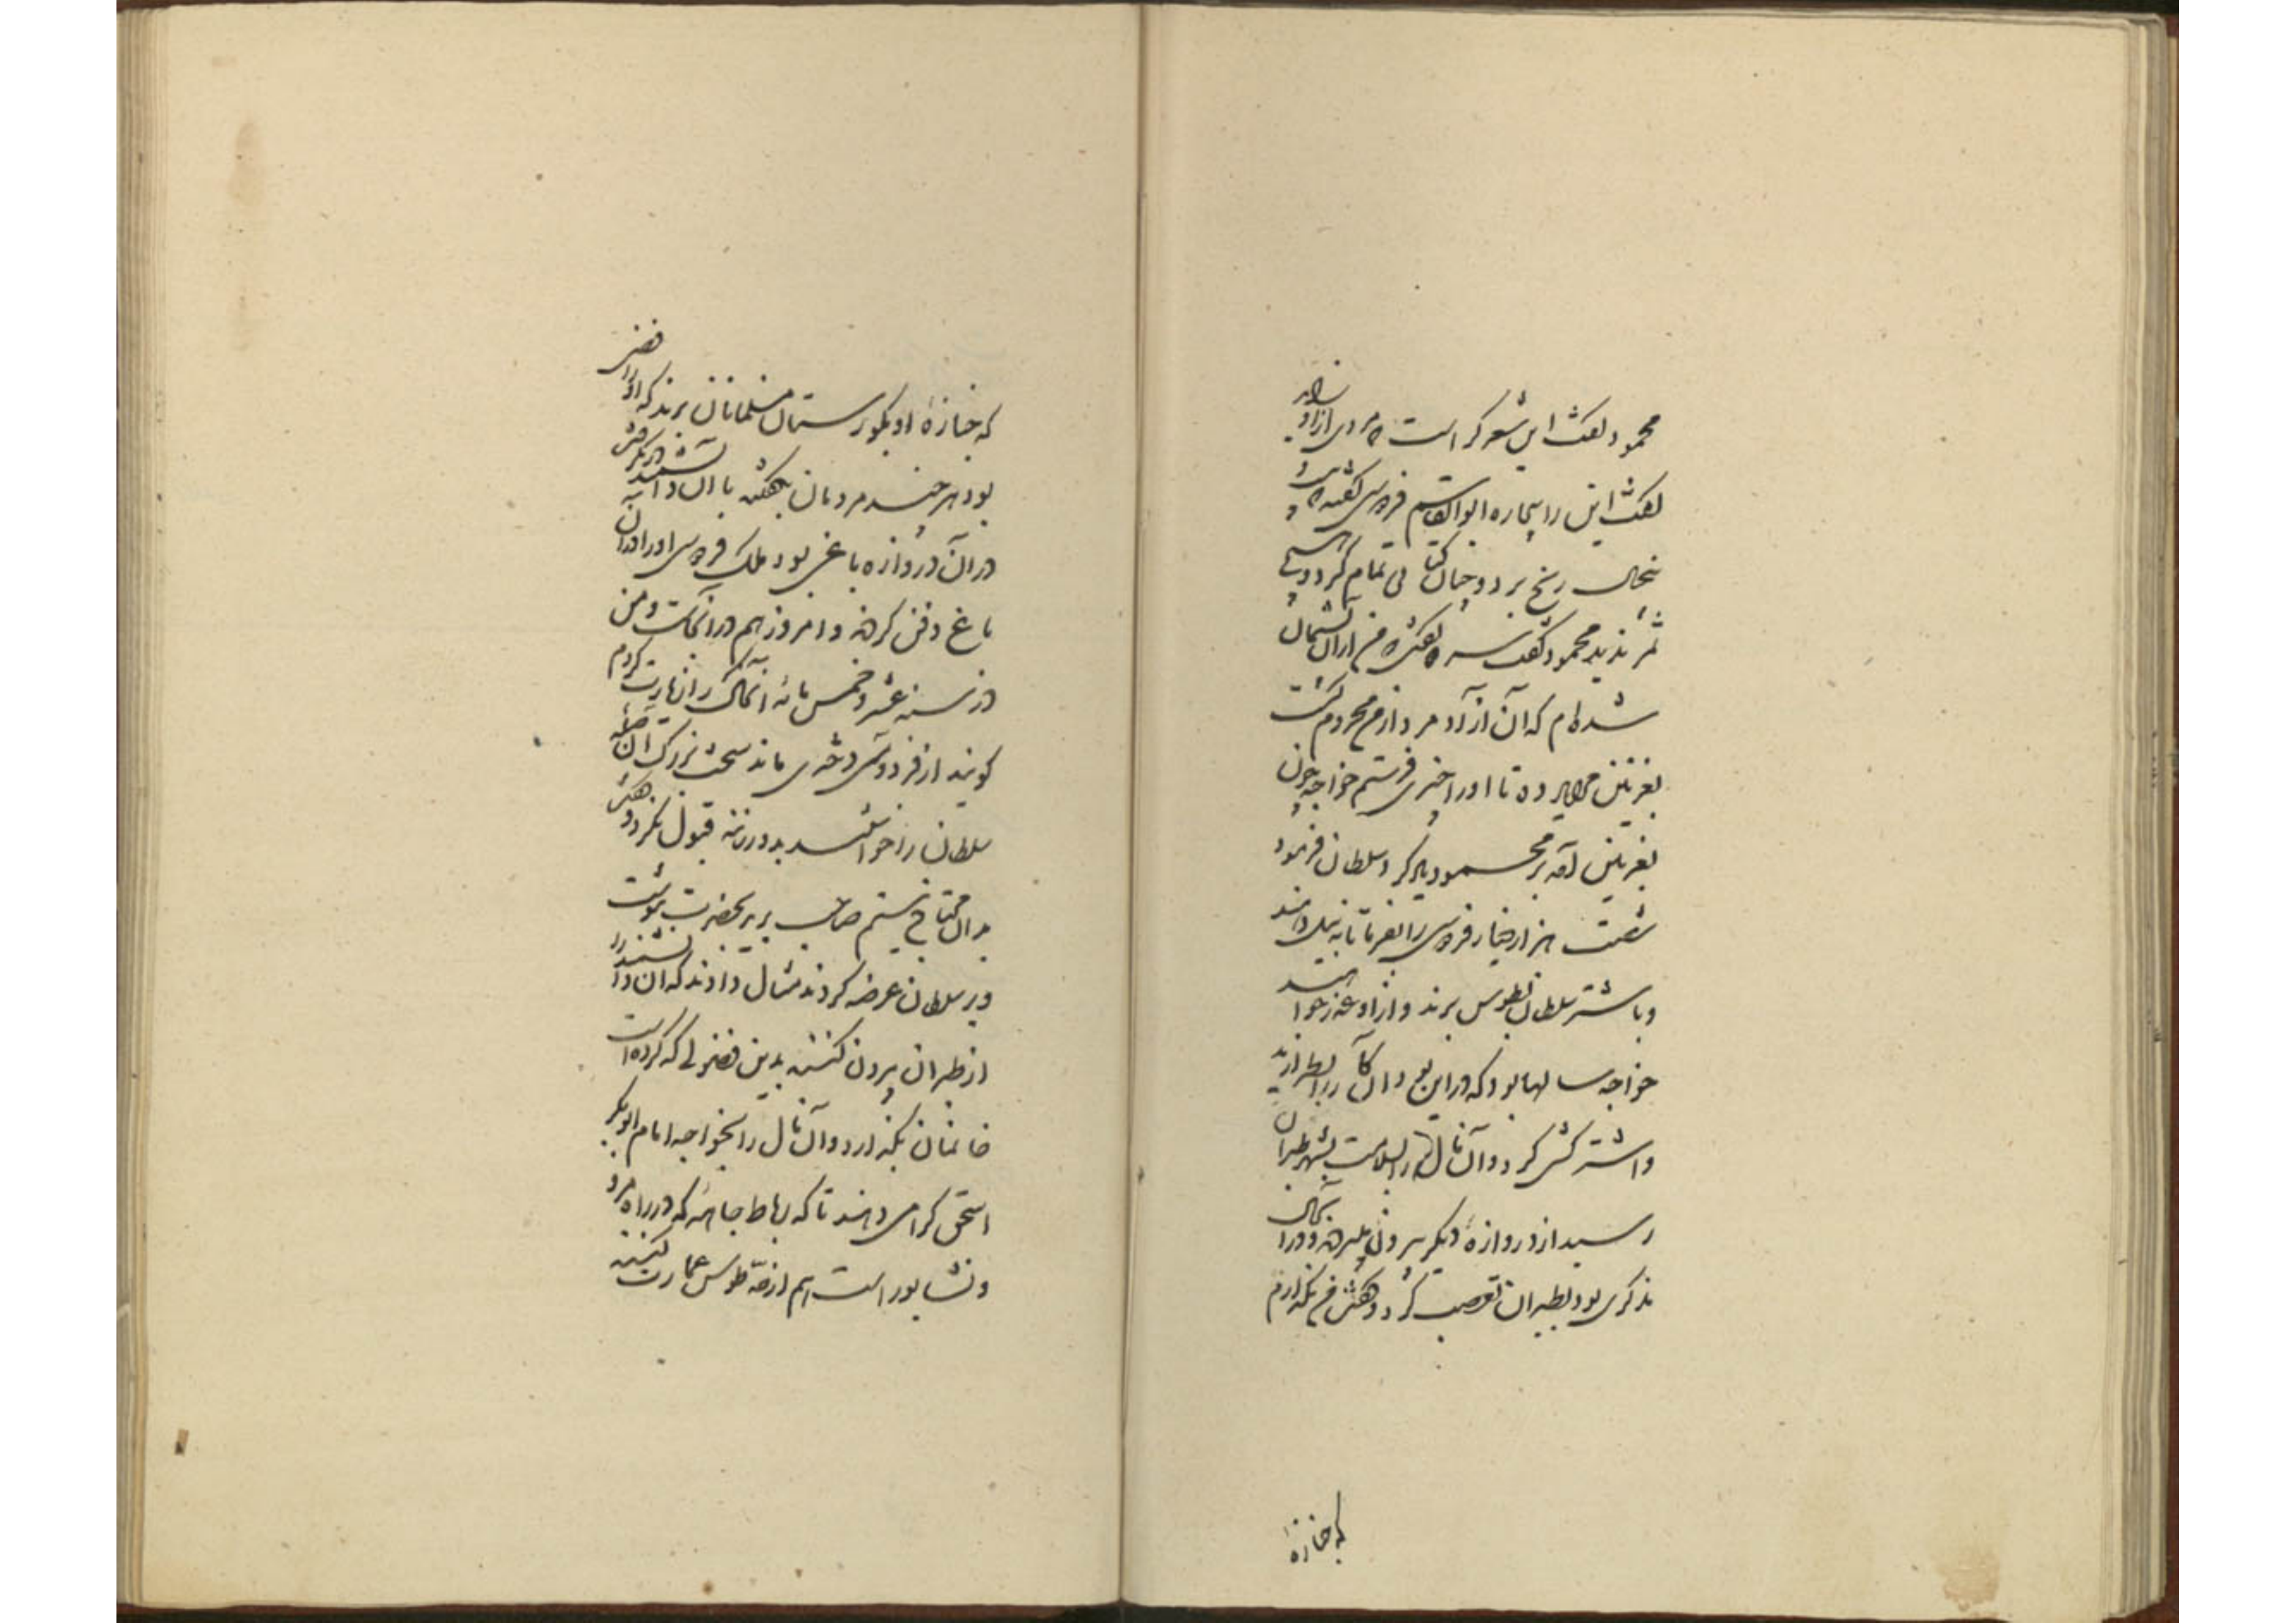 محمود گفت این شعر کراست که مردی ازو زاید
گفت این را بیچاره ابوالقاسم فردوسی گفته که بیست و پنج
سال رنج برد و چنان کتابی تمام کرد و هیچ
ثمر ندید محمود گفت سره گفتی که من از آن پشیمان
شده‌ام که آن آزاد مرد از من محروم گشت
بغزنین مرا یاد ده تا او را چیزی فرستم خواجه چون
بغزنین آمد بر محمود یاد کرد سلطان فرمود
شصت هزار دینار فردوسی را بفرما تا به نیل دهند
و با شتر سلطان بطوس برند و ازو عذر خواهند
خواجه سالها بود که در این بود و آن کار را بطرازید
و اشتر گسی کرد و آن نال را بسلامت بشهر طبران
رسید از دروازهٔ دیگر بیرون میبردند و در آنحال
مذکری بود بطبران تعصب کرد و گفت من نگذارم
که جنازهٔ
که جنازهٔ او بگورستان مسلمانان برند که او رافضی
بود هر چند مردمان بگفتند با آن دانشمند در نگرفت
در آن دروازه باغی بود ملک فردوسی او را در آن
باغ دفن کردند و امروز هم در آنجاست و من
در سنه عشر و خمس مائه آن خاک را زیارت کردم
گویند از فردوسی دختری ماند سخت بزرگ آن صلهٔ
سلطان را خواستند بدو دادند قبول نکرد و گفت
بدان محتاج نیستم صاحب برید بحضرت بنوشت
و بر سلطان عرضه کردند مثال دادند که آن دانشمند را
از طبران بیرون کنند بدین فضولی که کرده است
خانمان بگذارد و آن مال را بخواجه امام ابوبکر
اسحق کرامی دهند تا که رباط جاهه که در راه مرو
و نشابور است هم از حد طوس عمارت کنند